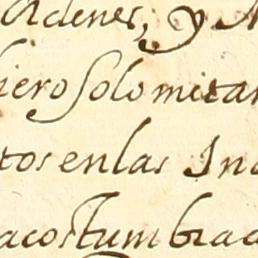 Ordenes, y
ierosolomitan
tos en las Ind
acostumbrad